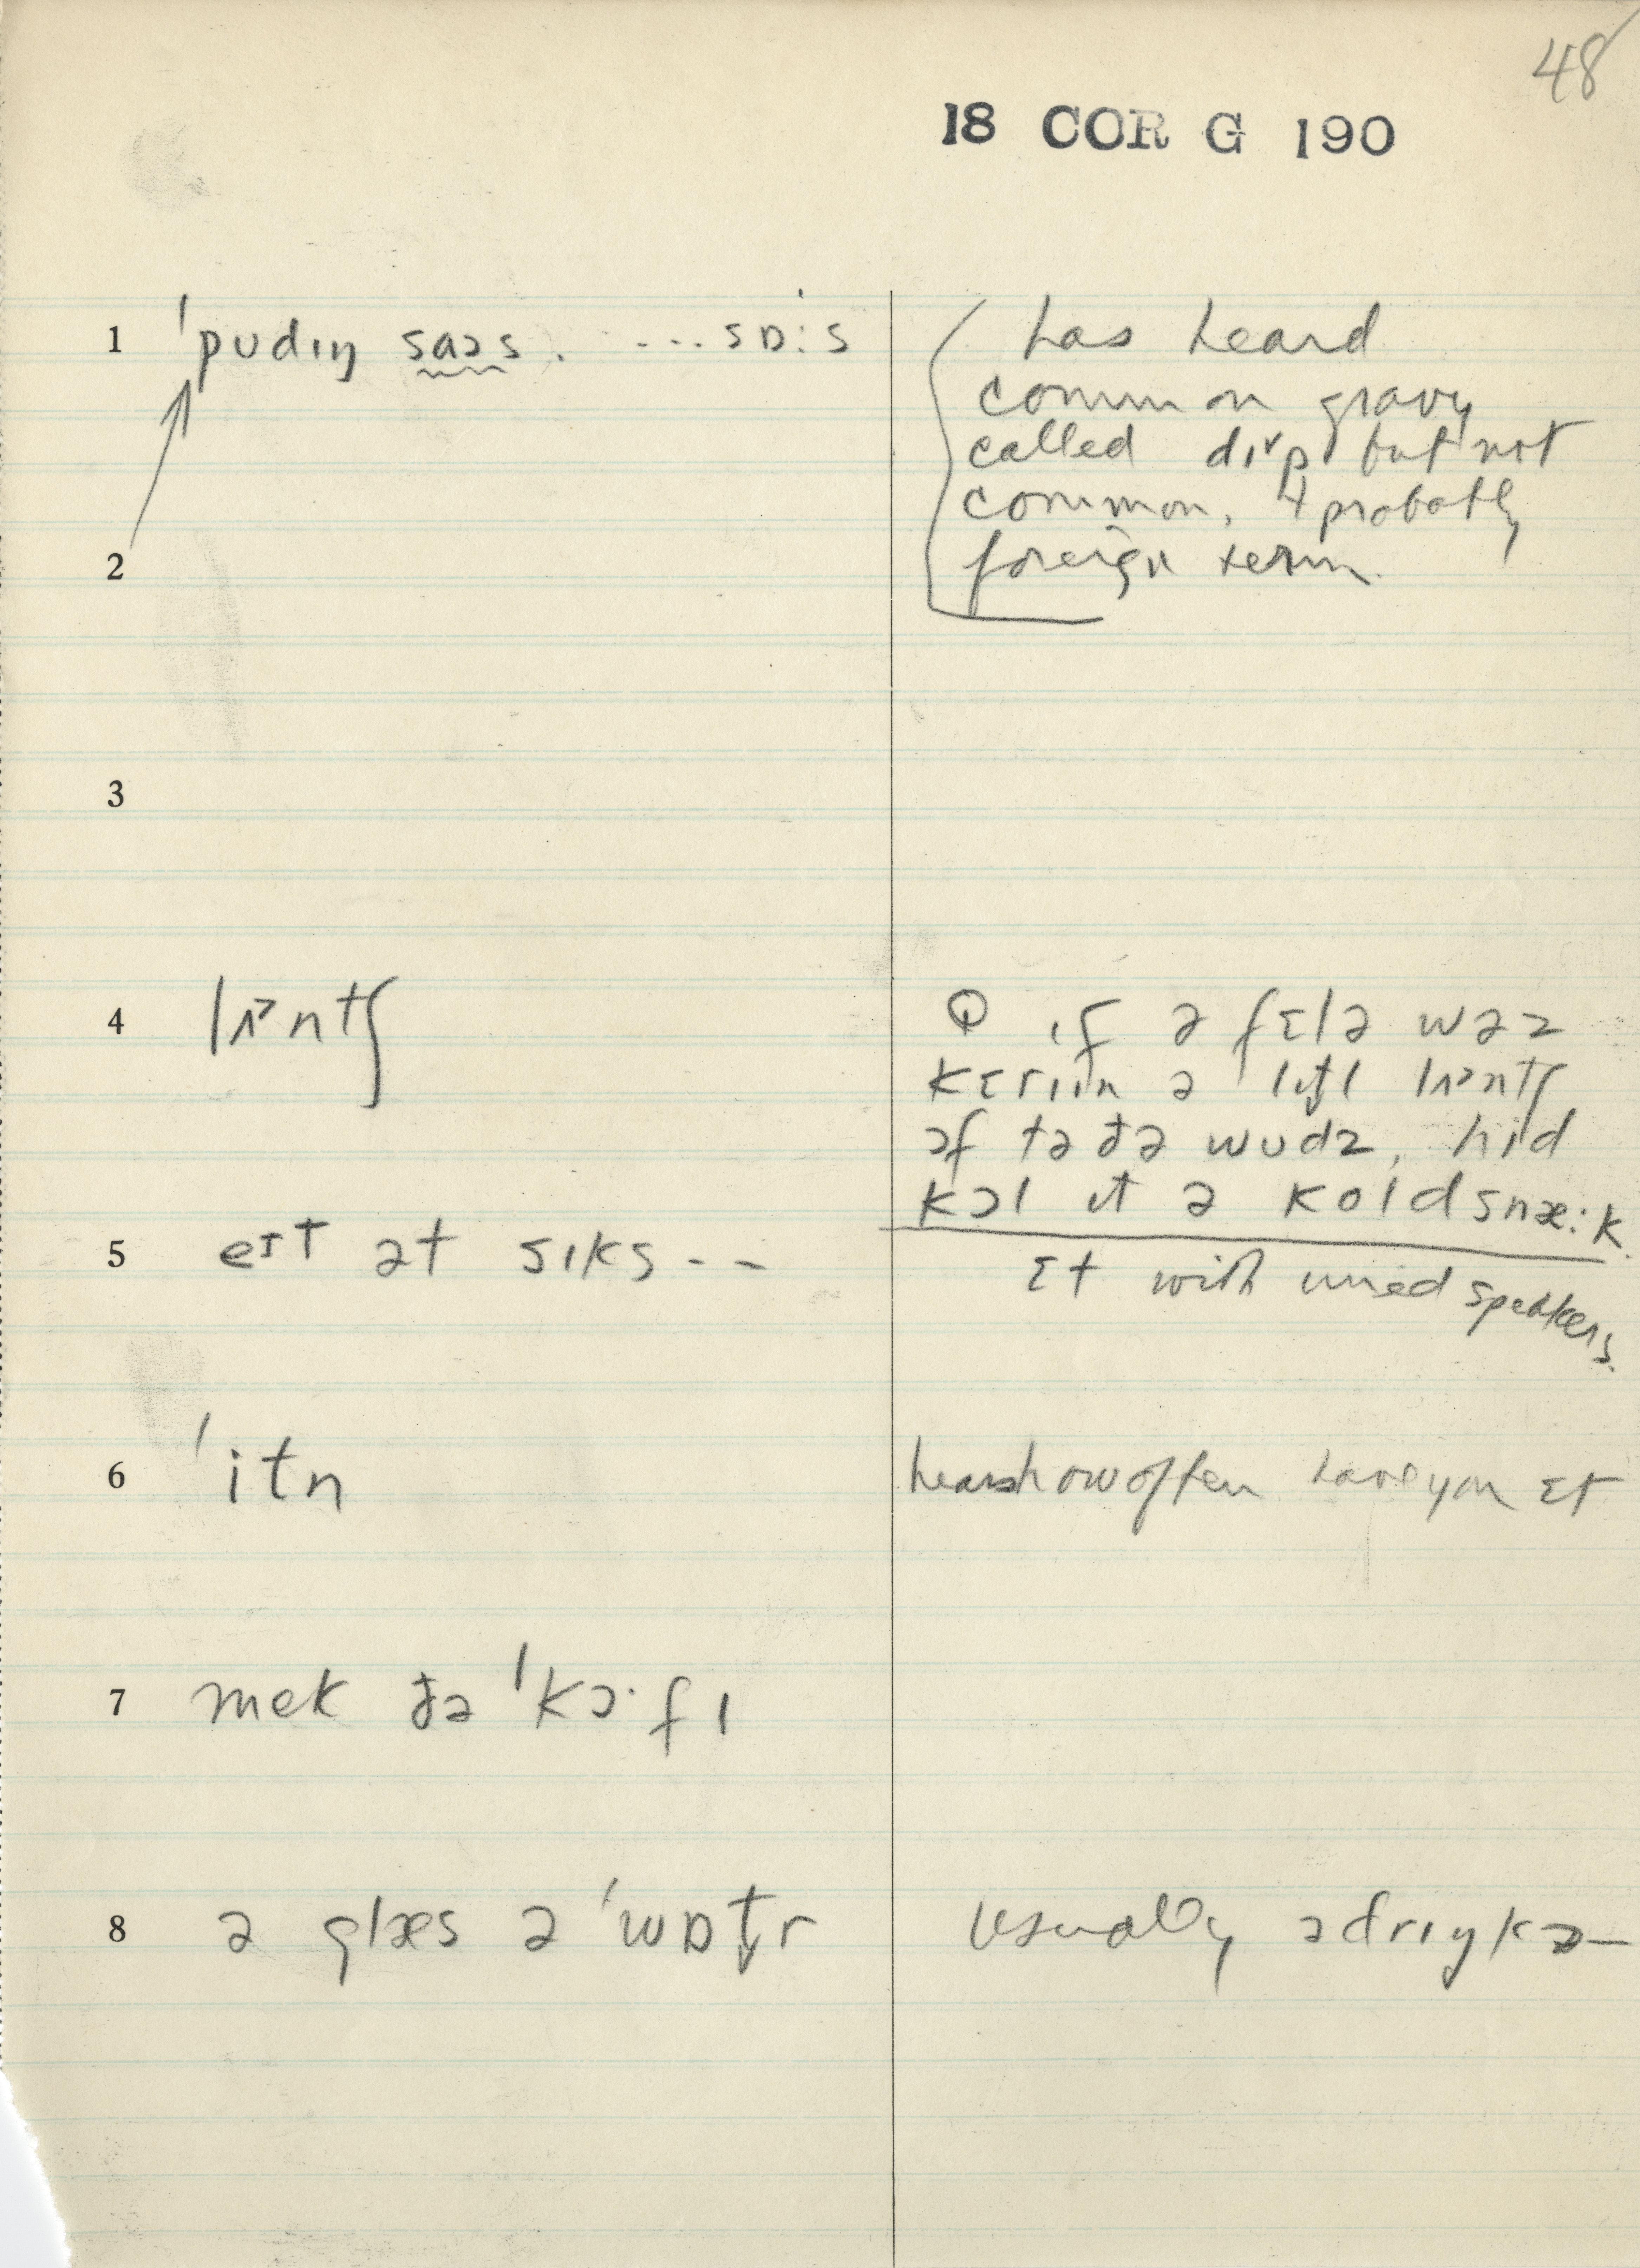 48
18 COR G 190
1 ˈpʊdɪŋ saɔs. ...sɒːs
has heard
common gravy
called dɪp but not
common, + probably
2
foreign term.
3
4 lɪ˃ntʃ
Q ɪf ə fɛlə wəz
kɛriɪn ə lɪt̬l lɪ˃ntʃ
ɔf tə ðə wʊdz, hid
kɔl ɪt ə koldsnæːk.
5 eɪt ət sɪks - -
ɛt with uned speakers.
6 ˈitn
hears how often have you ɛt
7 mek ðə ˈkɔ·fɪ
8 ə glæs ə ˈwɒt̬r
usually ədrɪŋkə—